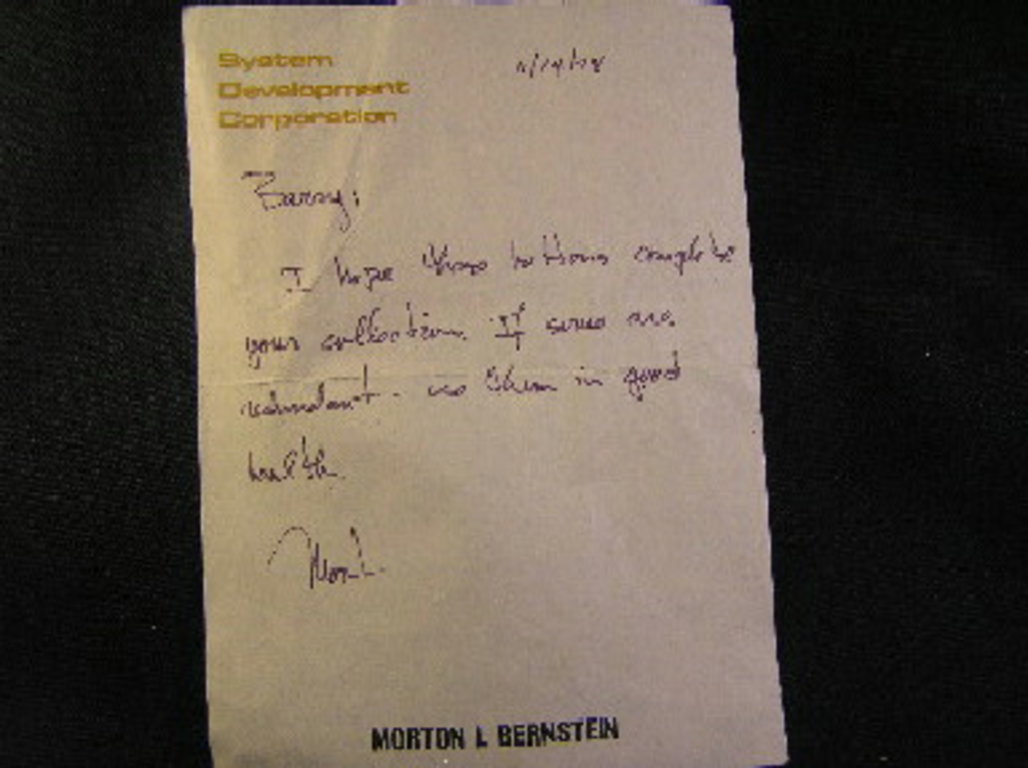 System
Development
Corporation
Barry:
I hope these buttons complete
your collection. If some are
redundant - use them in good
health.
Mort
MORTON L BERNSTEIN